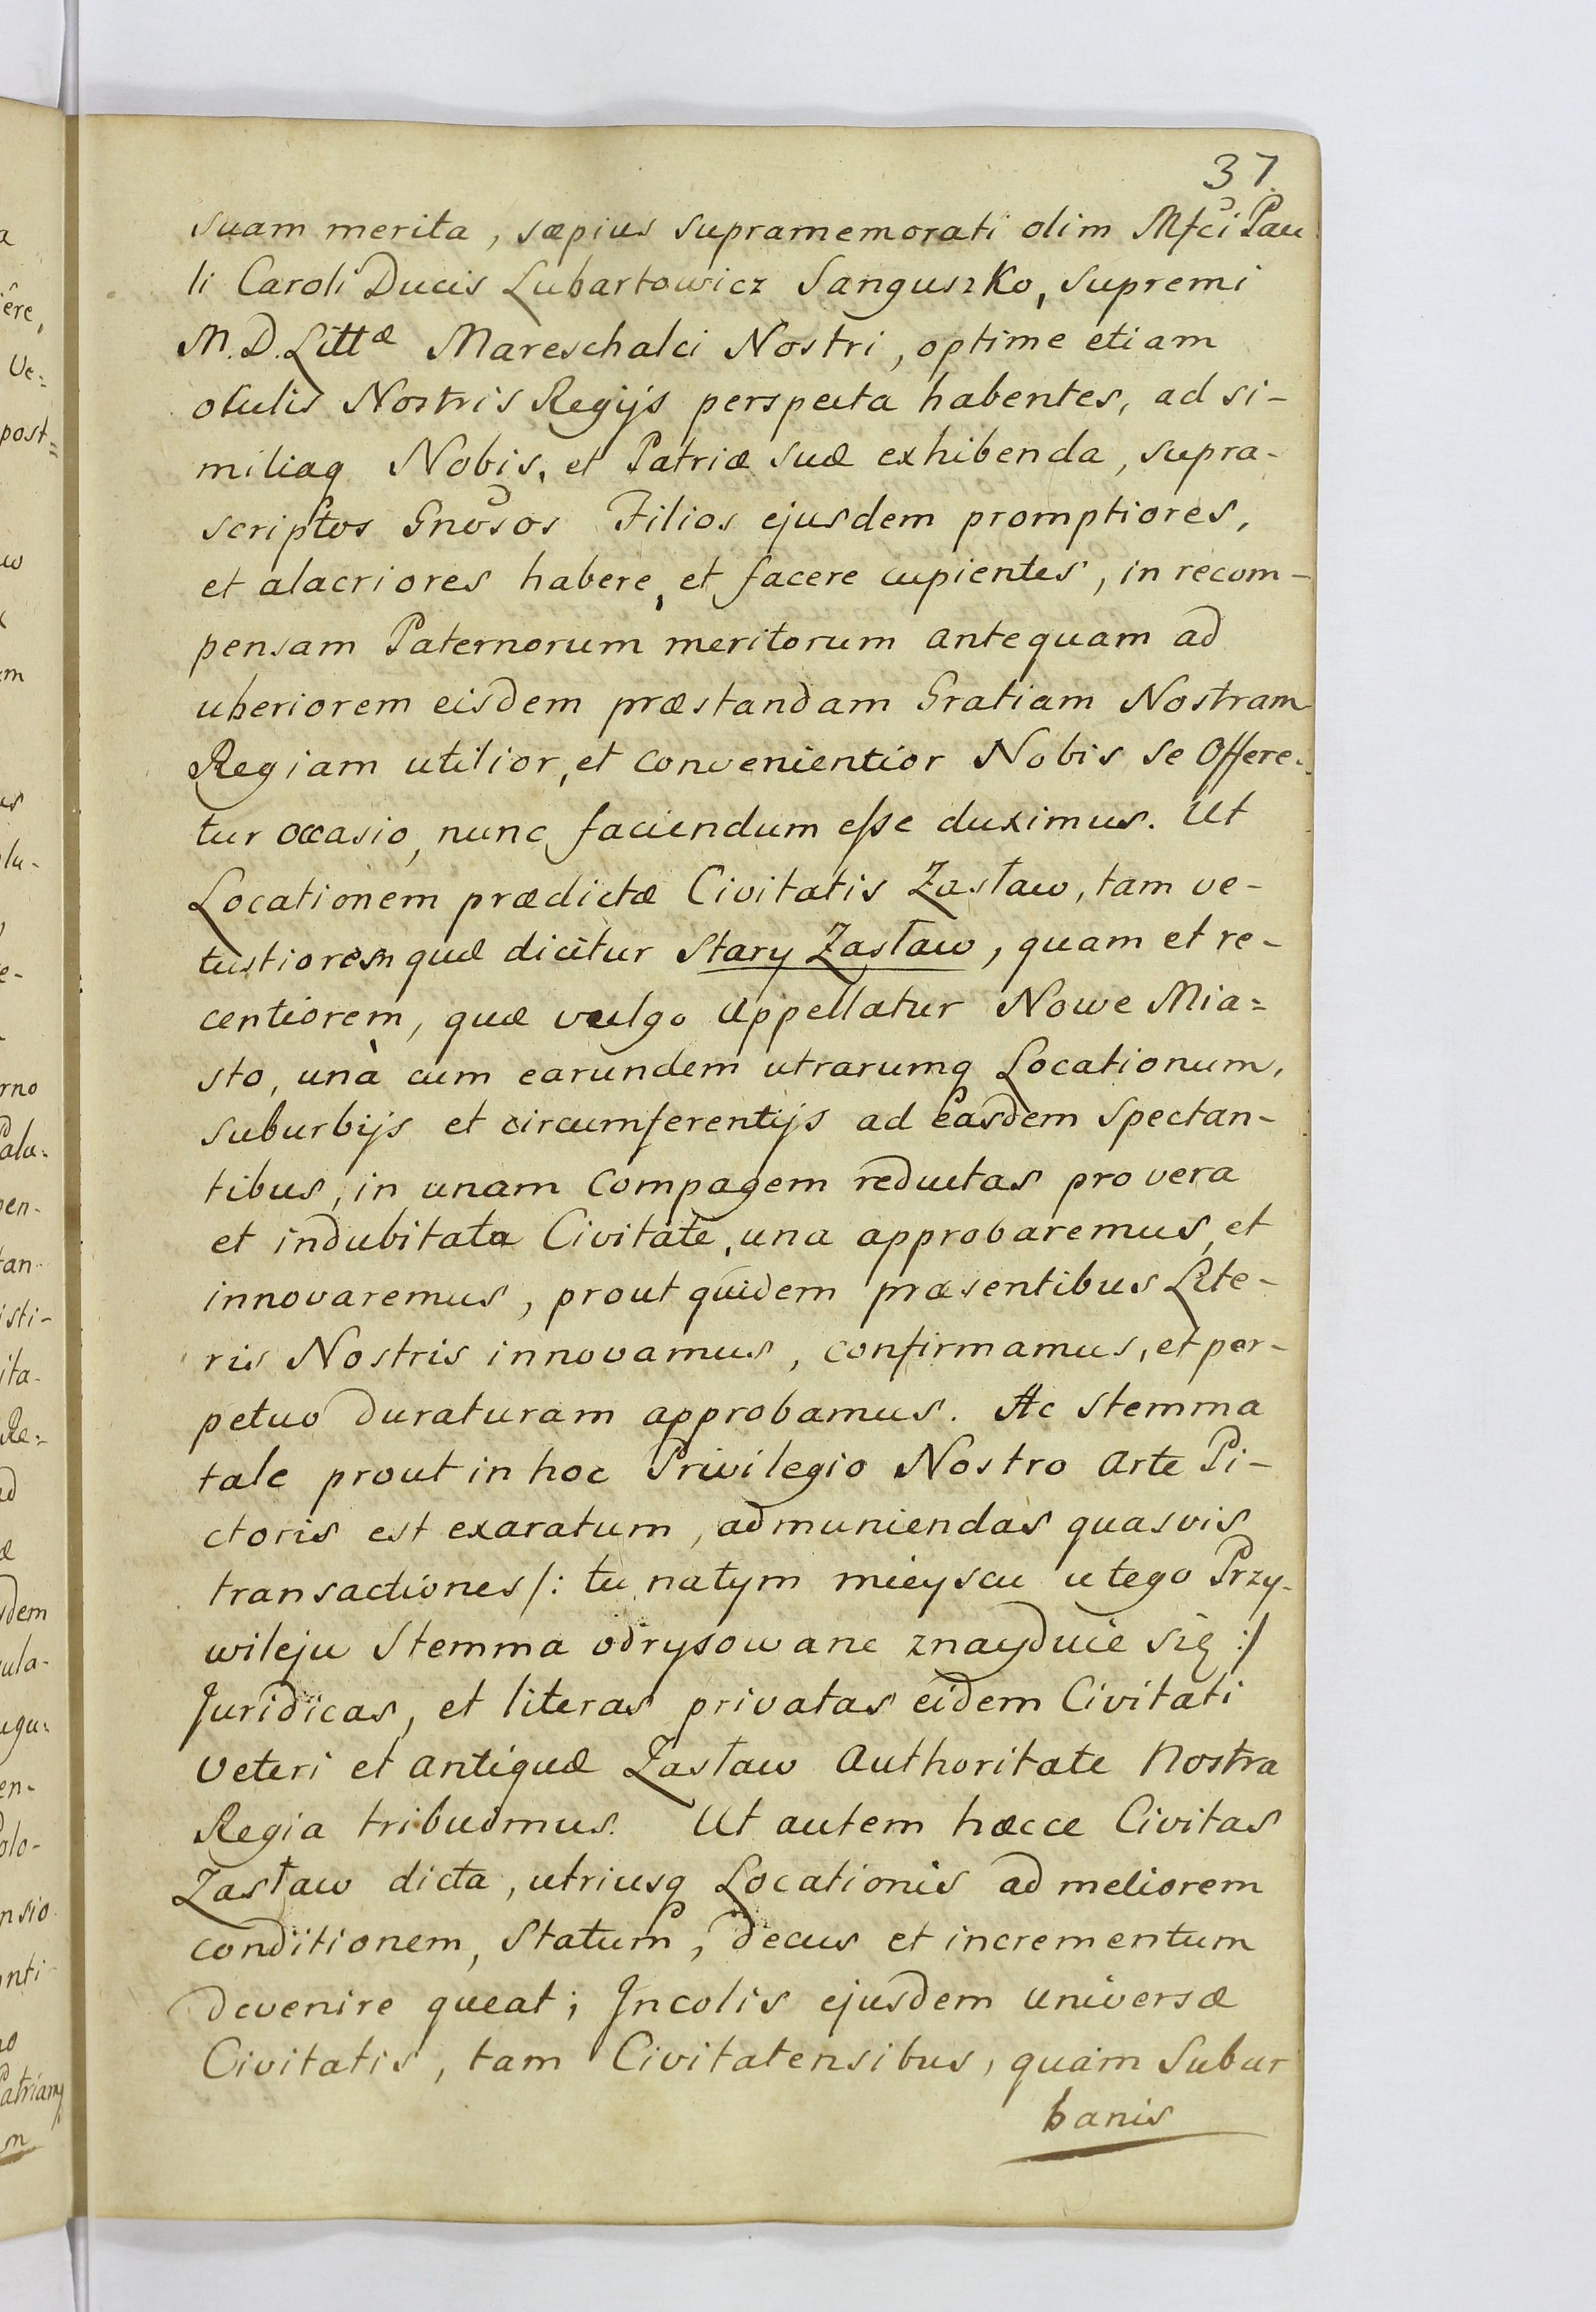 37.
suam merita, sæpius supramemorati olim Mfci Pau
li Caroli Ducis Lubartowicz Sanguszko, Supremi
M.D. Littæ Mareschalci Nostri, optime etiam
oculis Nostris Regijs perspecta habentes, ad si-
miliaq Nobis, et Patriæ suæ exhibenda, supra-
scriptos Gnosos Filios ejusdem promptiores,
et alacriores habere, et facere cupientes, in recom-
pensam Paternorum meritorum antequam ad
uberiorem eisdem præstandam Gratiam Nostram
Regiam utilior, et convenientior Nobis se offere-
tur occasio, nunc faciendum esse duximus. Ut
Locationem prædictæ Civitatis Zasław, tam ve-
tustiorem quæ dicitur Stary Zasław, quam et re-
centiorem, quæ vulgo appellatur Nowe Mia=
sto, unà cum earundem utrarumq Locationum,
suburbijs et circumferentijs ad easdem spectan-
tibus, in unam compagem reductas pro vera
et indubitata Civitate, una approbaremus, et
innovaremus, prout quidem præsentibus Lite-
ris Nostris innovamus, confirmamus, et per-
petuo duraturam approbamus. Ac stemma
tale prout in hoc Privilegio Nostro arte Pi-
ctoris est exaratum, ad muniendas quasvis
transactiones /: tu natym mieyscu u tego Przy-
wileju Stemma odrysowane znayduie się :/
Juridicas, et literas privatas eidem Civitati
veteri et antiquæ Zasław Authoritate Nostra
Regia tribuimus. Ut autem hæcce Civitas
Zasław dicta, utriusq Locationis ad meliorem
conditionem, statum, decus et incrementum
devenire queat; Incolis ejusdem universæ
Civitatis, tam Civitatensibus, quam Subur
banis